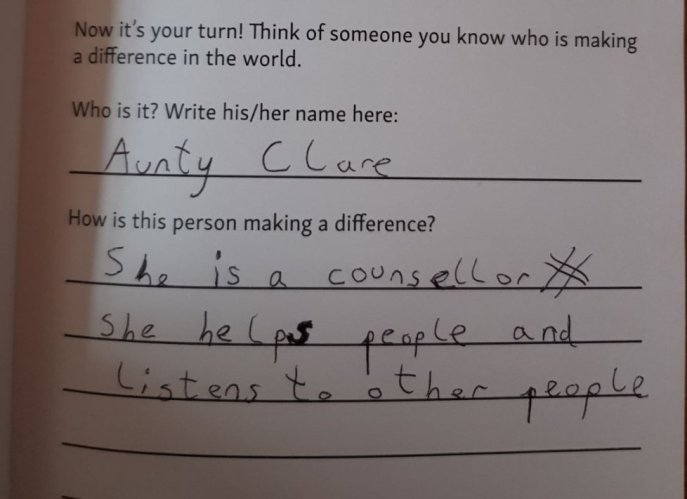 Now it's your turn! Think of someone you know who is making
a difference in the world.
Who is it? Write his/her name here:
Aunty Clare
How is this person making a difference?
She is a counsellor
she helps people and
listens to other people